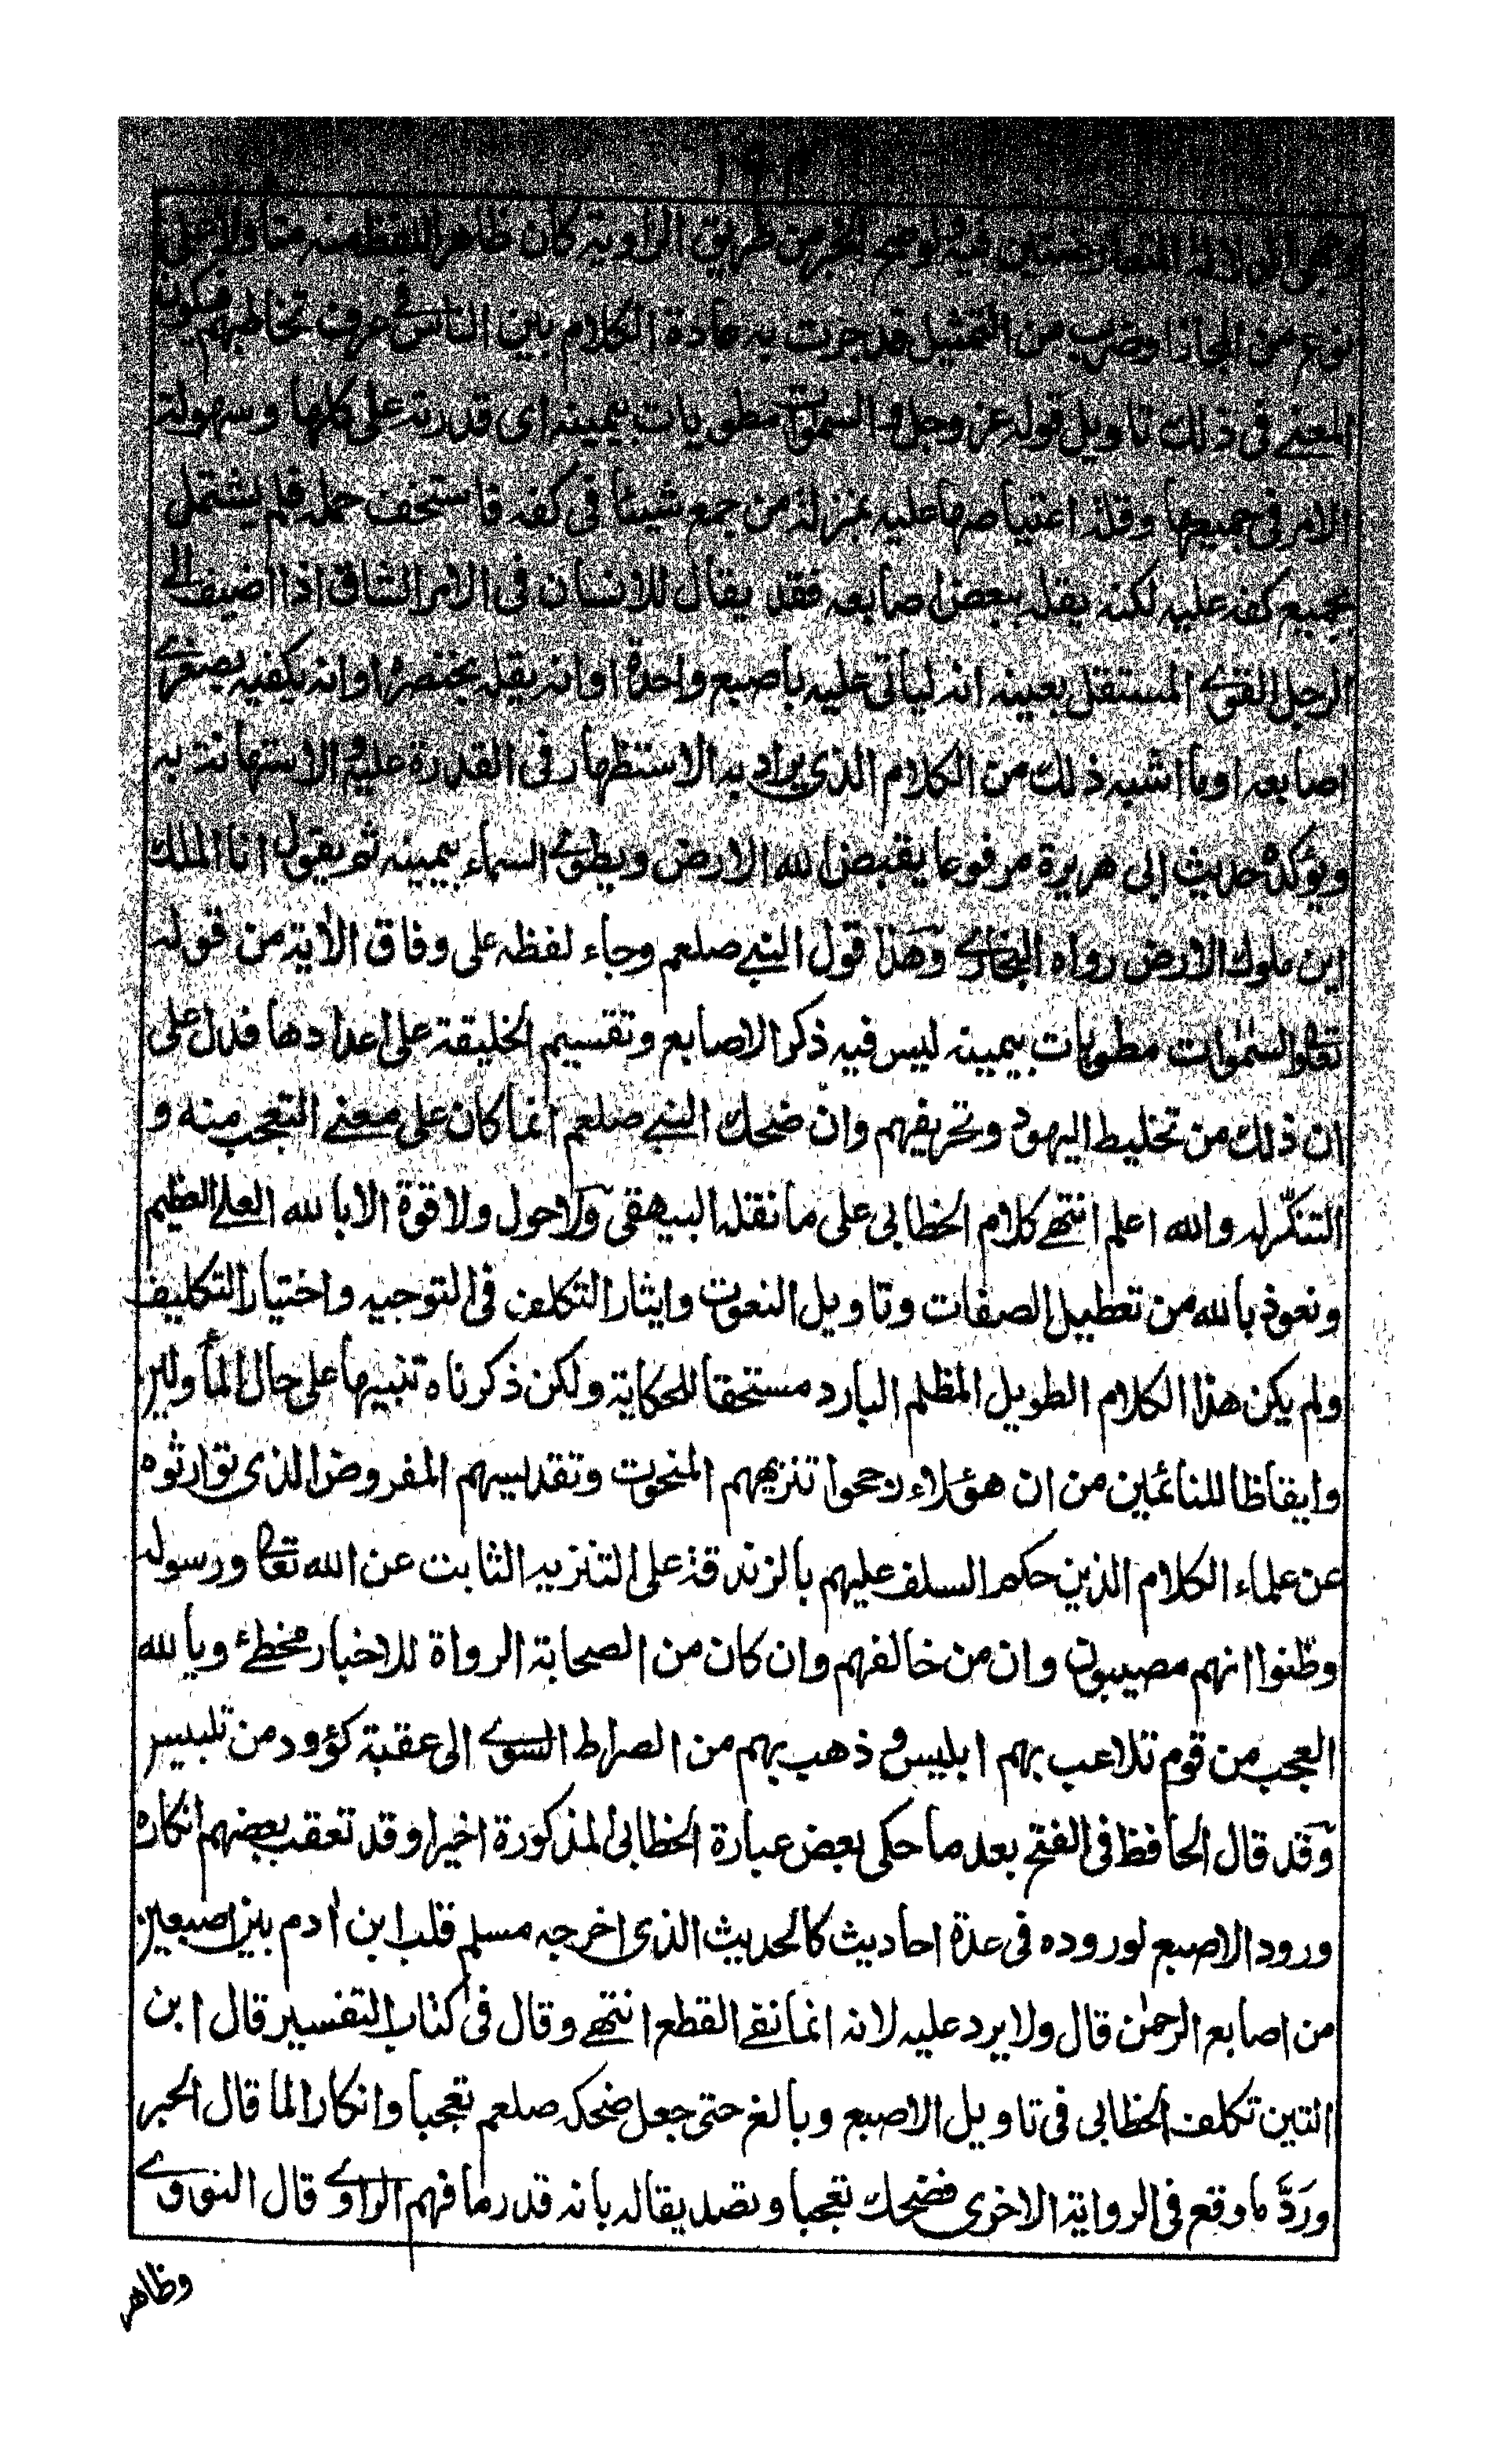 الدلالة المتعارضتين فيه ولو صح الخبر من طريق الرواية كان ظاهر اللفظ منه متأولا على
نوع من المجاز او ضرب من التمثيل قد جرت به عادة الكلام بين الناس فى عرف تخاطبهم فيكون
المعنے فى ذلك تاويل قوله عز وجل والسموات مطويات بيمينه اى قدرته على كلها وسهولة
الامر فى جميعها وقلة اعتياصها عليه بمنزلة من جمع شيئا فى كفه فاستخف حمله فلم يشتمل
بجميع كفه عليه لكنه يقله ببعض اصابعه فقد يقال للانسان فى الامر الشاق اذا اضيف الى
الرجل القوے المستقل بعبئه انه ليأتى عليه باصبع واحدة او انه يقله بخنصره او انه يكفيه بصغرے
اصابعه او ما اشبه ذلك من الكلام الذى يراد به الاستظهار فى القدرة عليه والاستهانة به
ويؤكده حديث ابى هريرة مرفوعا يقبض الله الارض ويطوے السماء بيمينه ثم يقول انا الملك
اين ملوك الارض رواه البخارے وهذا قول النبے صلعم وجاء لفظه على وفاق الأية من قوله
تعالى والسمٰوات مطويات بيمينه ليس فيه ذكر الاصابع وتقسيم الخليقة على اعدادها فدل على
ان ذلك من تخليط اليهود وتحريفهم وان ضحك النبے صلعم انما كان على معنے التعجب منه و
التنكّر له والله اعلم انتهے كلام الخطابى على ما نقله البيهقى ولا حول ولا قوة الا بالله العلے العظيم
ونعوذ بالله من تعطيل الصفات وتاويل النعوت وايثار التكلف فى التوجيه واختيار التكليف
ولم يكن هذا الكلام الطويل المظلم البارد مستحقا للحكاية ولكن ذكرناه تنبيها على حال المأولين
وايقاظا للنائمين من ان هؤلاء رجحوا تنزيههم المنحوت وتقديسهم المفروض الذى توارثوه
عن علماء الكلام الذين حكم السلف عليهم بالزندقة على التنزيه الثابت عن الله تعالى ورسوله
وظنوا انهم مصيبون وان من خالفهم وان كان من الصحابة الرواة للاخبار مخطئ ويا لله
العجب من قوم تلاعب بهم ابليس و ذهب بهم من الصراط السوے الى عقبة كؤود من تلبيس
وقد قال الحافظ فى الفتح بعد ما حكى بعض عبارة الخطابى المذكورة اخيرا وقد تعقب بعضهم انكاره
ورود الاصبع لوروده فى عدة احاديث كالحديث الذى اخرجه مسلم قلب ابن أدم بين اصبعين
من اصابع الرحمٰن قال ولا يرد عليه لانه انما نفے القطع انتهے وقال فى كتاب التفسير قال ابن
التين تكلف الخطابى فى تاويل الاصبع وبالغ حتى جعل ضحكه صلعم تعجبا وانكارا لما قال الحبر
وردَّ ما وقع فى الرواية الاخرى فضحك تعجبا وتصديقا له بانه قدر ما فهم الراوے قال النووے
وظاهر